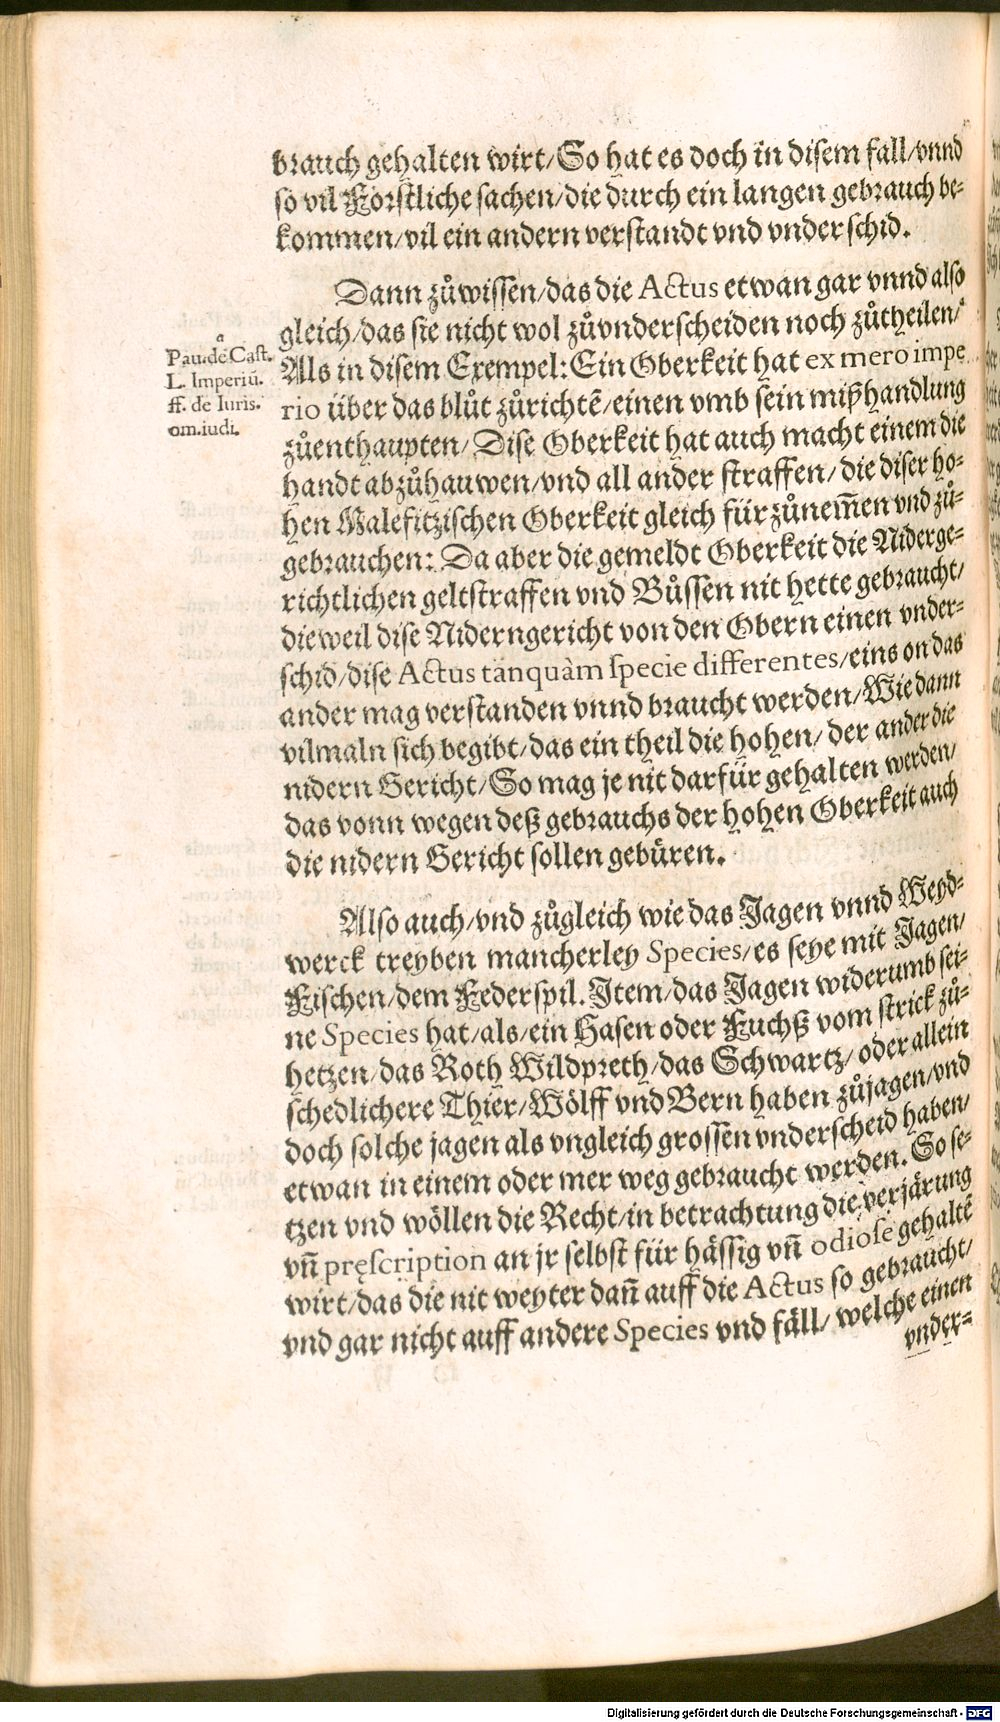 brauch gehalten wirt/So hat es doch in disem fall/vnnd
so vil Forstliche sachen/die durch ein langen gebrauch be-
kommen/vil ein andern verstandt vnd vnderschid.
Dann zůwissen/das die Actus etwan gar vnnd also
gleich/das sie nicht wol zůvnderscheiden noch zůtheilen/ª
a
Pau. de Cast.
L. Imperiū.
ff. de Iuris.
om. iudi.
Als in disem Exempel: Ein Oberkeit hat ex mero impe
rio über das blůt zůrichtē/einen vmb sein mißhandlung
zůenthaupten/Dise Oberkeit hat auch macht einem die
handt abzůhauwen/vnd all ander straffen/die diser ho-
hen Malefitzischen Oberkeit gleich für zůnem̄en vnd zů-
gebrauchen: Da aber die gemeldt Oberkeit die Niderge-
richtlichen geltstraffen vnd Bůssen nit hette gebraucht/
dieweil dise Niderngericht von den Obern einen vnder-
schid/dise Actus tanquàm specie differentes/eins on das
ander mag verstanden vnnd braucht werden/Wie dann
vilmaln sich begibt/das ein theil die hohen/der ander die
nidern Gericht/So mag je nit darfür gehalten werden/
das vonn wegen deß gebrauchs der hohen Oberkeit auch
die nidern Gericht sollen gebüren.
Also auch/vnd zůgleich wie das Jagen vnnd Weyd-
werck treyben mancherley Species/es seye mit Jagen/
Fischen/dem Federspil. Item/das Jagen widerumb sei-
ne Species hat/als/ein Hasen oder Fuchß vom strick zů-
hetzen/das Roth Wildpreth/das Schwartz/oder allein
schedlichere Thier/Wölff vnd Bern haben zůjagen/vnd
doch solche jagen als vngleich grossen vnderscheid haben/
etwan in einem oder mer weg gebraucht werden. So se-
tzen vnd wöllen die Recht/in betrachtung die verjärung
vn̄ pręscription an jr selbst für hässig vn̄ odiose gehaltē
wirt/das die nit weyter dan̄ auff die Actus so gebraucht/
vnd gar nicht auff andere Species vnd fäll/welche einen
vnder-
Digitalisierung gefördert durch die Deutsche Forschungsgemeinschaft - DFG